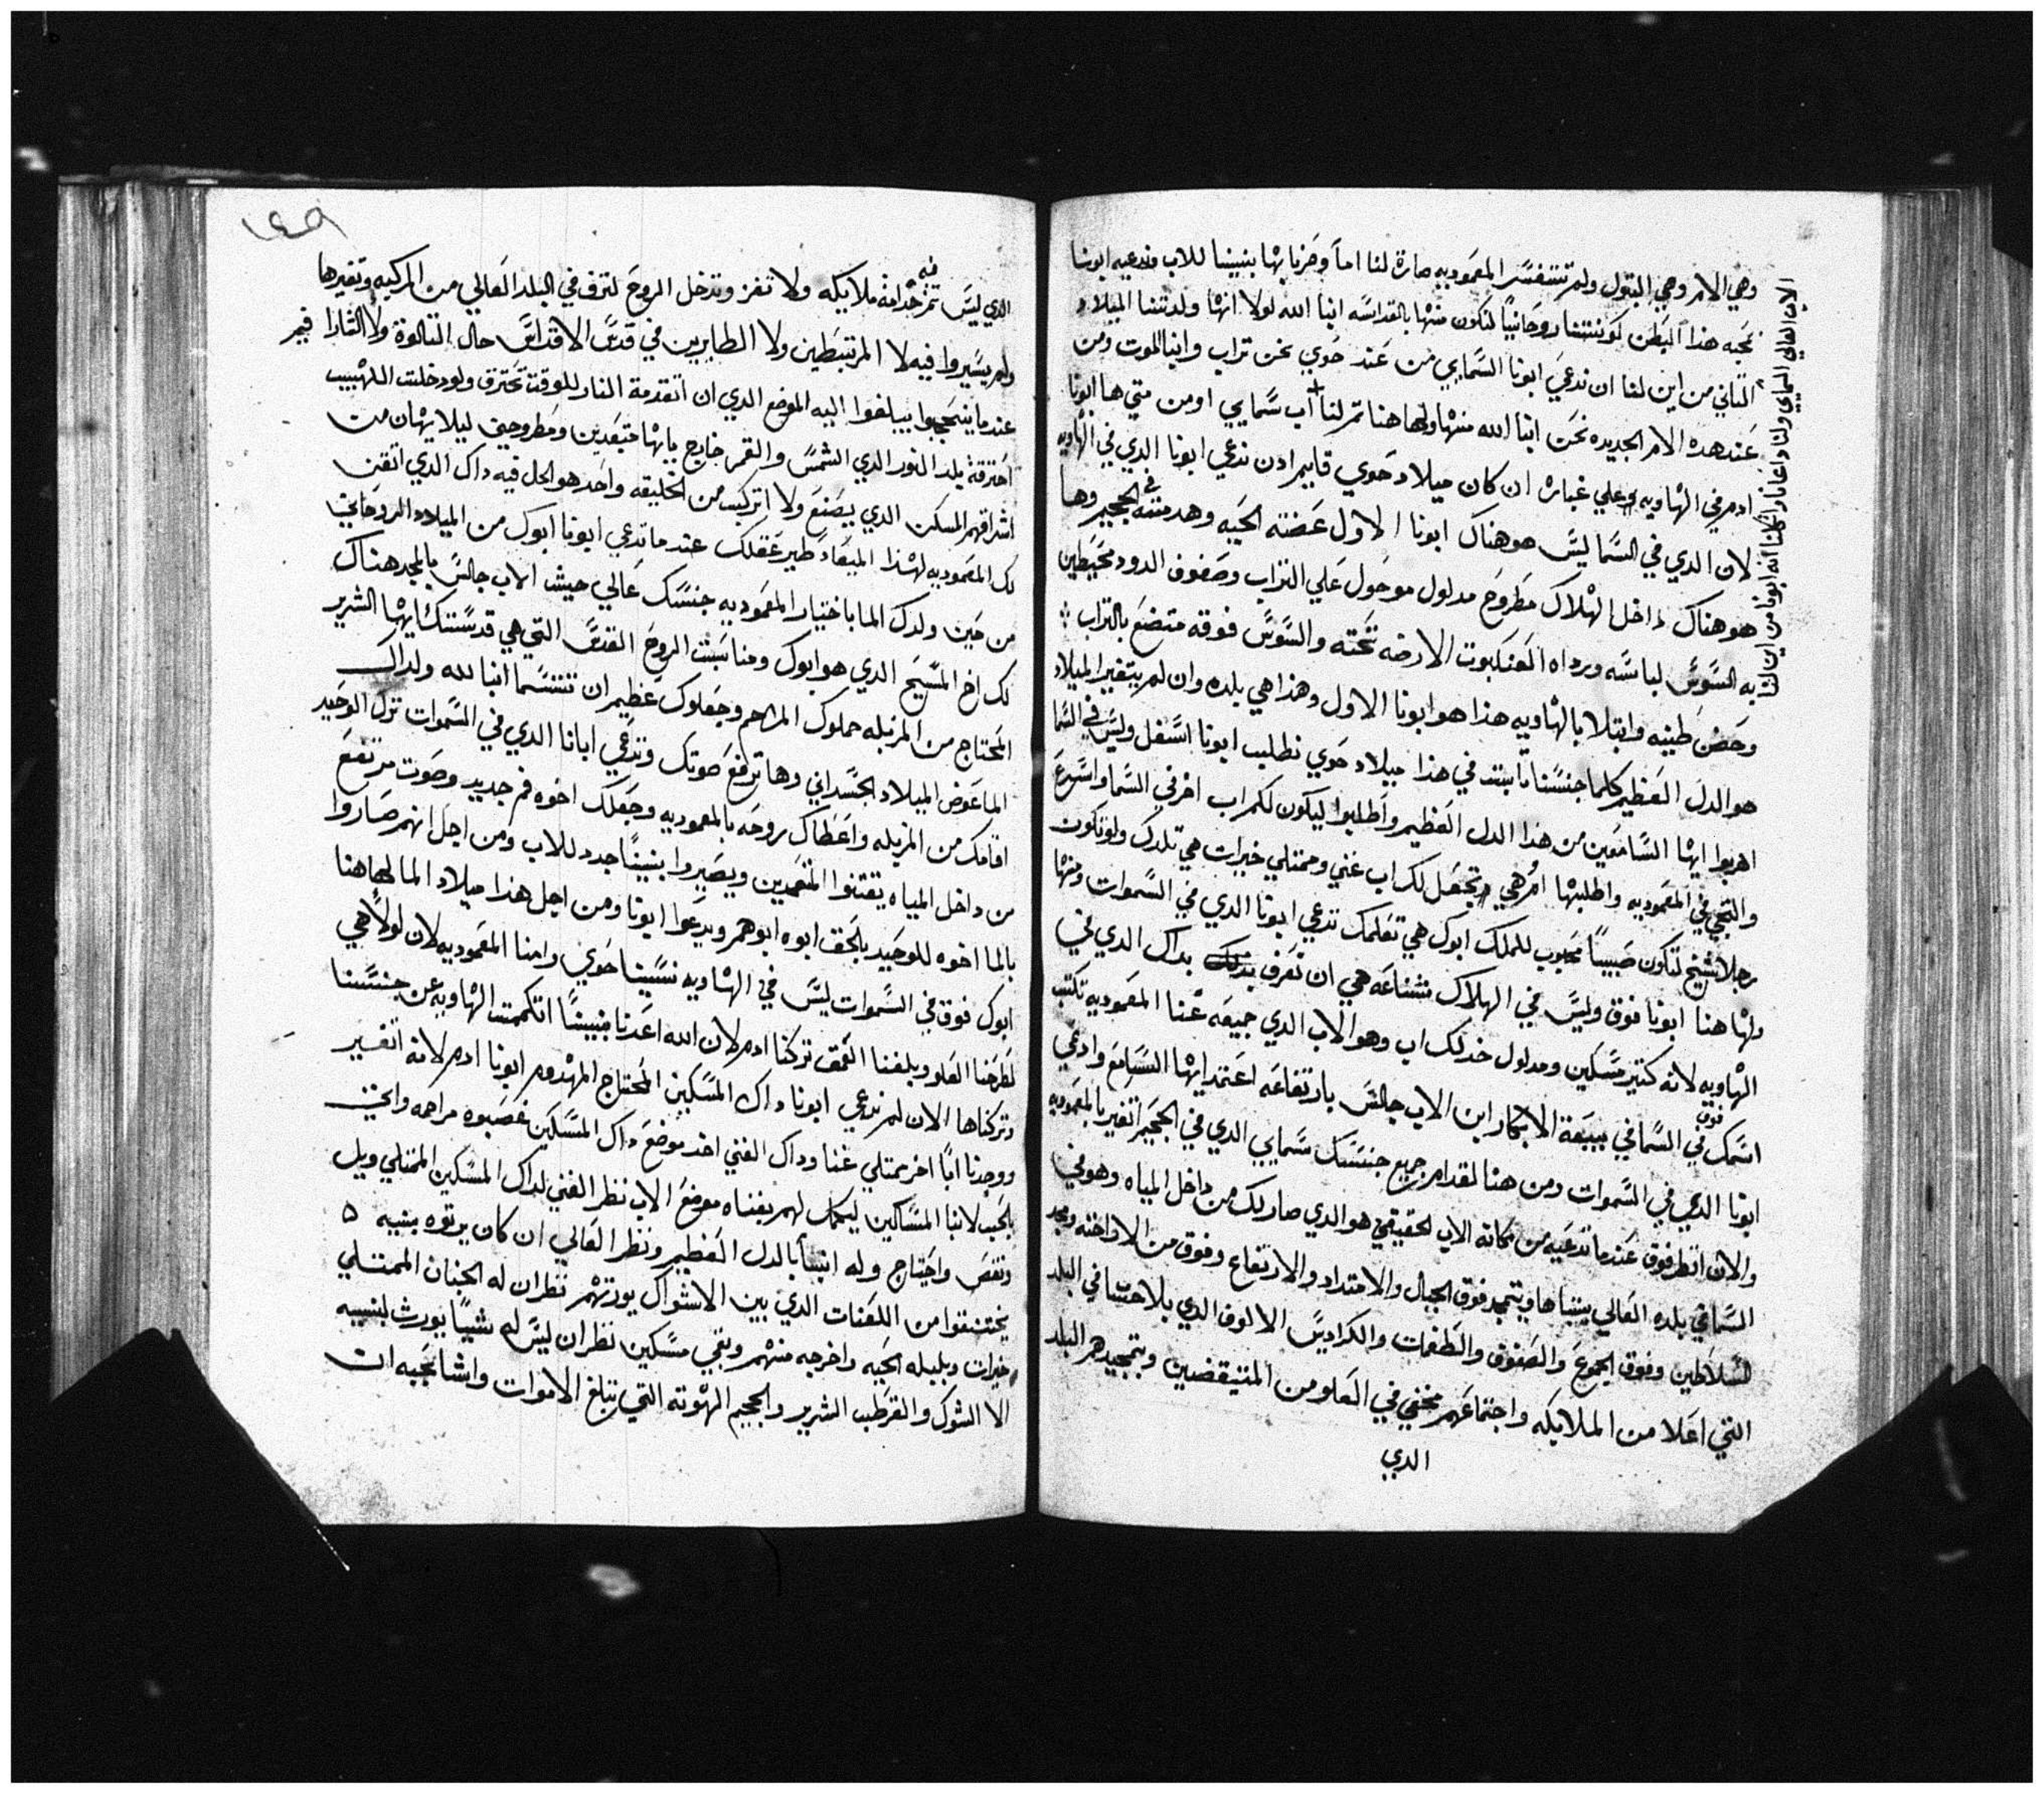 وهي الام وهي البتول ولم تتفسر المعموديه صارة لنا اماً وصرنا بها بنينا للاب وندعيه ابونا
بمحبه هذا البطن كونتنا روحانياً لنكون منها بالقداسه ابنا الله لولا انها ولدتنا الميلاد
التاني من اين لنا ان ندعي ابونا السمايي من عند حوي نحن تراب وابنا الموت ومن
عند هده الام الجديده نحن ابنا الله منها ولها هنا تم لنا اب سمايي اومن متي ها ابونا
ادم في الهاويه وعلي غباره ان كان ميلاد حوي قايم ادن ندعي ابونا الدي في الهاويه
لان الدي في السما ليس هو هناك ابونا الاول عضته الحيه وهدمته في الجحيم وها
هو هناك داخل الهلاك مطروح مدلول موحول علي التراب وصفوف الدود محيطين
به السوس لباسه ورداه العنكبوت الارضه تحته والسوس فوقه متضع بالتراب
وحضن طينه وابتلا بالهاويه هذا هو ابونا الاول وهذا هي بلده وان لم يتغير الميلاد
هو الدل العظيم كلما جنسنا تابت في هذا ميلاد حوي نطلب ابونا اسفل وليس في السما
اهربوا ايها السامعين من هدا الدل العظيم واطلبوا ليكون لكم اب اخر في السما واسرع
والتجي في المعموديه واطلبها ام هي تجعل لك اب غني وممتلي خيرات هي تلدك ولو تكون
رجلا شيخ لتكون صبيباً محبوب للملك ابوك هي تعلمك ندعي ابونا الدي في السموات ومنها
ولها هنا ابونا فوق وليس في الهلاك شناعه هي ان تعرف بداك الدي في
الهاويه لانه كتير مسكين ومدلول خد لك اب وهو الاب الدي جميعه غنا المعموديه تكتب
اسمك فوق في السما في بيعة الابكار ابن الاب جالس بارتفاعه اعتمد ايها السامع وادعي
ابونا الدي في السموات ومن هنا لقدام جميع جنسك سمايي الدي في الجحيم اتغير بالمعموديه
والان انظر فوق عند ما تدعيه من مكانه الاب الحقيقي هو الدي صار لك من داخل المياه وهو في
السما في بلده العالي يتباها ويتمجد فوق الجبال والامتداد والارتفاع وفوق من الاراخنه ومجد
السلاطين وفوق الجموع والصفوف والطغمات والكراديس الالوف الدي بلا احتسا في البلد
التي اعلا من الملايكه واجتماعهم مخفي في العلو من المتيقضين وبتمجيدهم البلد
الدي
الاب العالي السمايي ولنا دعانا من اين لنا
الدي ليس تم فيه خدامه ملايكه ولا تفز وتدخل الروح لتزف في البلد العالي من المركبه وتغيرها
ولم يسيروا فيه لا المرتبطين ولا الطايرين في قدس الاقداس حال التالوة ولا الثارا فيم
عند ما يتحجبوا يبلغوا اليه الموضع الدي ان اتقدمة النار للوقت تحترق ولو دخلت اللهبيب
احترقة بلد النور الدي الشمس والقمر خارج بابها متبعدين ومطروحين ليلا يهان من
اشراقهم المسكن الدي يصنع ولا اتركب من الخليقه واحد هو الحل فيه داك الدي اتقن
لك المعموديه لهذا الميعاد طير عقلك عند ما تدعي ابونا ابوك من الميلاد الروحاني
من حين ولدك الما باختيار المعموديه جنسك عالي حيث الاب جالس بالمجد هناك
لك اخ المسيح الدي هو ابوك ومناسبت الروح القدس التي هي قدستك ايها الشرير
المحتاج من المزبله حملوك المراحم وجعلوك عظيم ان تتسما ابنا لله ولداك
الما عوض الميلاد الجسداني وها ترفع صوتك وتدعي ابانا الدي في السموات نزل الوحيد
اقامك من المزبله واعطاك روحه بالمعموديه وجعلك اخوه فم جديد وصوت مرتفع
من داخل المياه يقتنوا المتعمدين ويصيروا بنيناً جدد للاب ومن اجل انهم صاروا
بالما اخوه للوحيد بالحق ابوه ابوهم ويدعوا ابونا ومن اجل هذا ميلاد الما لها هنا
ابوك فوق في السموات ليس في الهاويه نسيتنا حوي وامنا المعموديه لان لولا هي
لطرحنا العلو وبلغنا العمق تركنا ادم لان الله اعدنا بنيناً اتكممت الهاويه عن جنسنا
وتركناها الان لم ندعي ابونا داك المسكين المحتاج المهدوم ابونا ادم لانه اتغير
ووجدنا اباً اخر ممتلي غنا وداك الغني اخد موضع داك المسكين غصبوه مراحمه وانحني
بالحب لابنا المساكين ليكمل لهم بغناه موضع الاب نظر الغني لداك المسكين الممتلي ويل
ونقص واحتياج وله ابنيا بالدل العظيم ونظر العالي ان كان يرتوه بنيه
يختنقوا من اللعنات الدي بين الاشواك يورتهم نظر ان له الجنان الممتلي
خيرات وبلبله الحيه واخرجه منهم وبقي مسكين نظر ان ليس له شياً يورث لبنيه
الا الشوك والقرطب الشرير والجحيم الهوته التي تبلغ الاموات واشا بمحبه ان